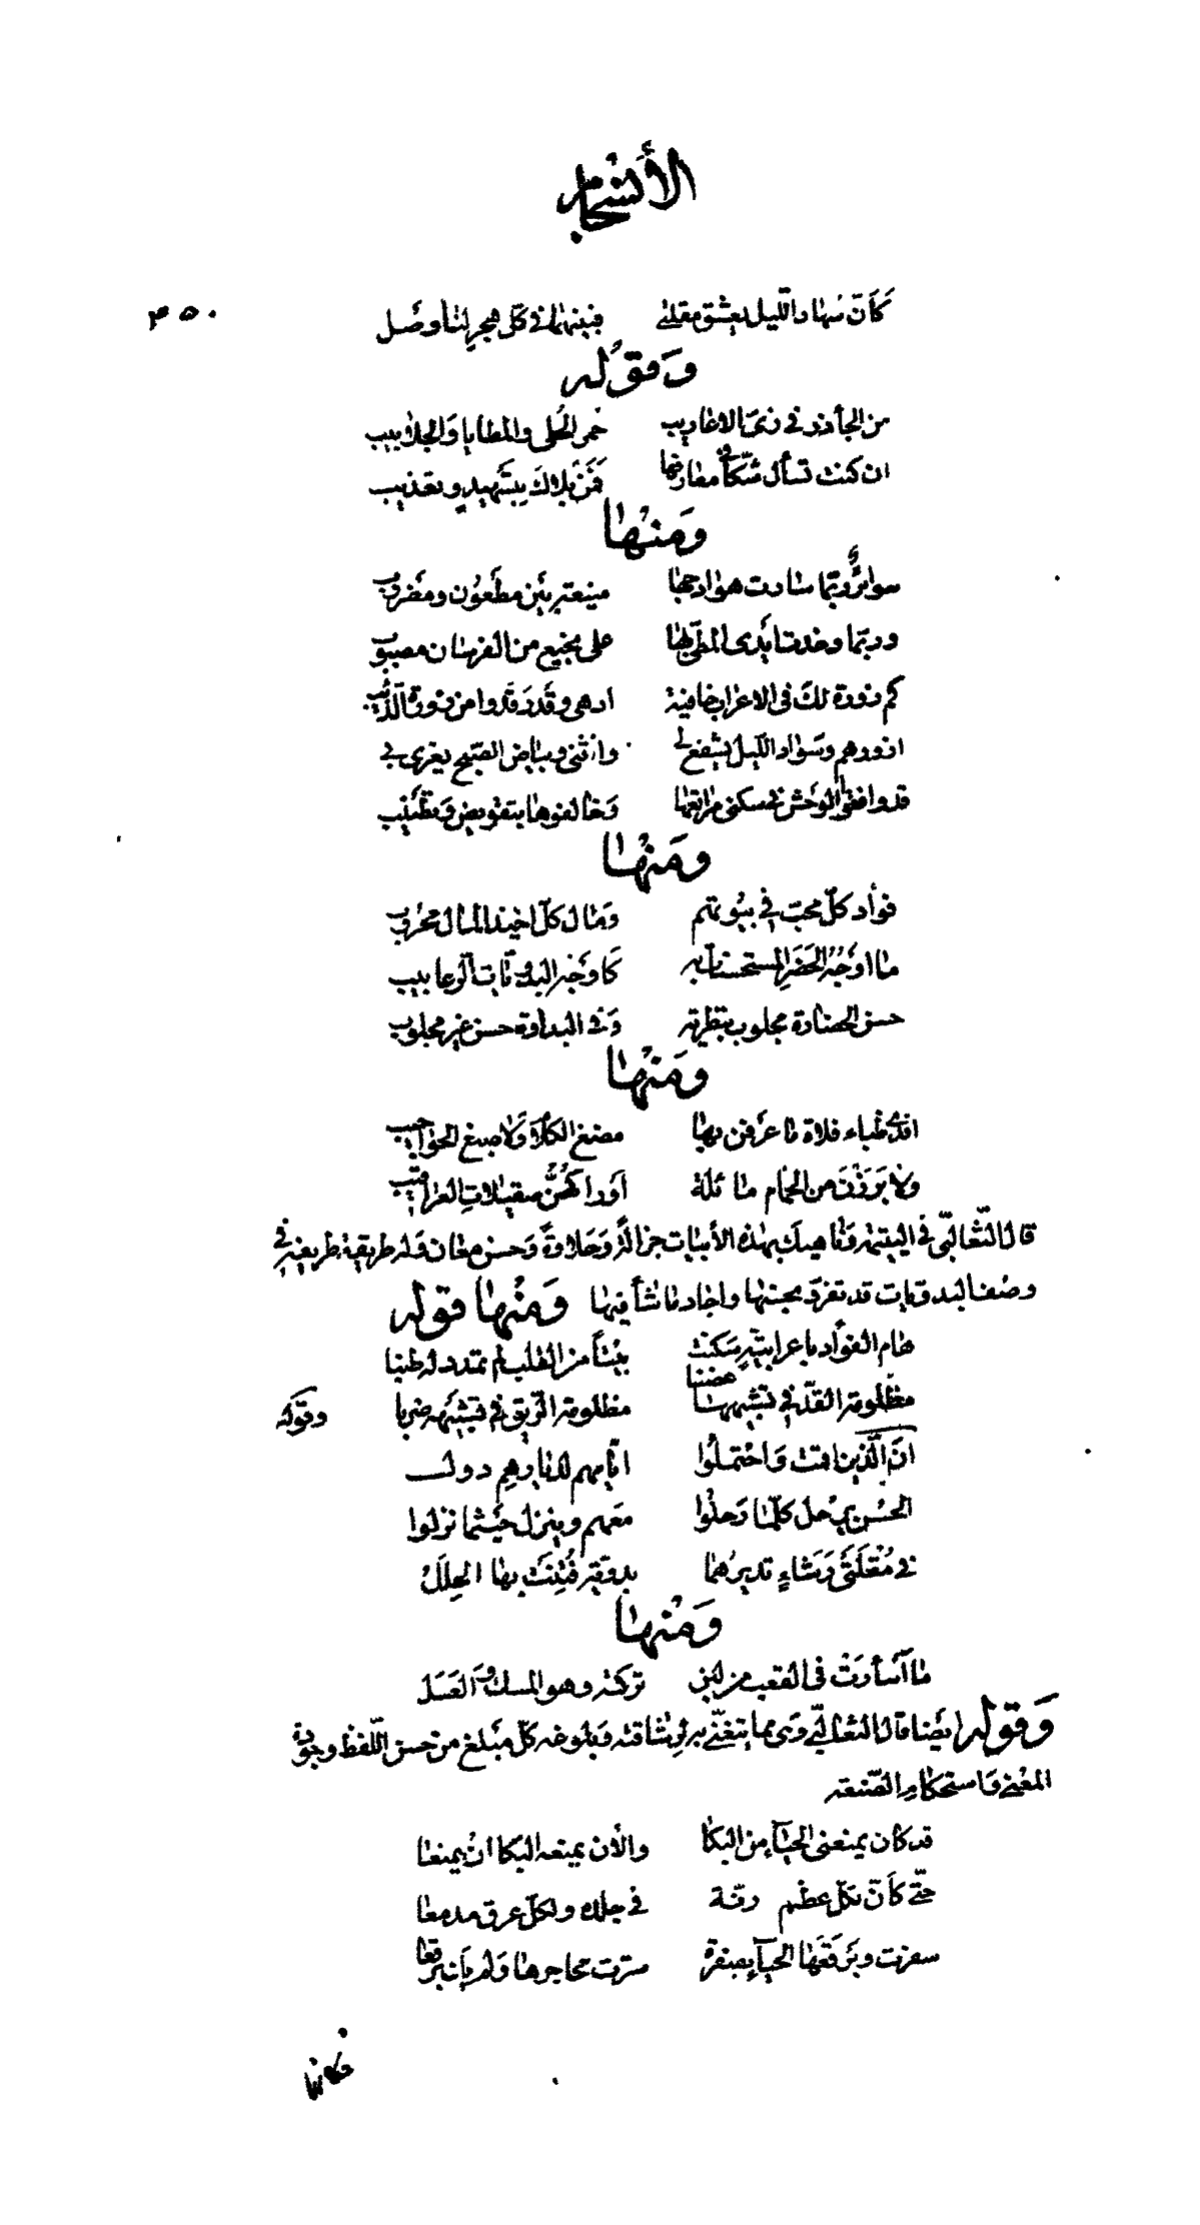 الأشجار
كَأنّ سُهاد اللّيل يعشق مقلتي فبينهما في كلّ هجرٍ لنا وصَل
٣٥٠
وَمِنْ قَولِه
من الجأذر في زىّ الاعاريب حُمر الحُلى والمطايا وَالجلابيب
ان كنت تسأل شكّاً في معارفها فَمَنْ بَلاكَ بتَسْهيدٍ وتعذيب
وَمَنْها
سوائرٌ ربّما سارت هوادجها منيعة بَيْن مطعُون ومضَروب
وربّما وخدت أيدى المطىّ بها على نجيع من الفرسان مصبوب
كم زورة لك فى الاعراب خافية ادهى وقَدرَقدوا من زورة الذّيب
ازورهم وسَواد اللّيل يشفع لى وانثنى وبياض الصّبح يغرى بى
قد وافقوا الوَحش فى سكنى مراتعها وَخالفوها بتقويض وَتطْنيب
وَمَنْها
فوأد كلّ محبّ في بيُوتهم وَمال كلّ اخيذ المال محرُوب
ما اوجُه الحضَر المستحسنات به كأوجَه البدويّات الرّعابيب
حسن الحضارة مجلوب بتطرية وَفى البداوة حسن غير مجلوب
وَمَنْها
افدى ظباء فلاة ما عرفن بها مضغ الكلام وَلا صبغ الحواجيب
ولا بَرَزْنَ من الحمّام مائلة اَوراكهُنَّ صقيلات العراقيب
قال الثّعالبّى فى اليتيمة وَناهيك بهذه الأبيات جزالةً وَحلاوةً وَحسن معان وَله طريقة ظريفة فى
وصف البدويات قد تفرّد بحسنها واجاد ما شأ فيها وَمنْها قوله
هام الفوأد باعرابيّةٍ سَكنَت بَيْتاً من القلب لم تمدد له طنبا
مظلومة القدّ فى تشبيهه غصنا مظلومة الرّيق فى تشبيهه ضربا وقوله
انّ الّذين اقمت وَاحْتملُوا ايّامهم لديارهم دول
الحُسْن يرْحل كلّما رَحلُوا معَهم وينزل حيَثما نزلوا
فى مُقْلَتَى رَشاءٍ تديرُهما بدويّة فُتِنَت بها الحِلَلُ
وَمَنْها
ما اَسْأرَتْ فى القعب من لبنٍ تركته وهو المسك وَالعَسَل
وَقوله ايَضا قال الثعالبّى وَهى مما يتغنّى به لرشاقته وَبلوغه كلّ مَبْلغ من حسن اللّفظ وجودة
المعْنى وَاستحكام الصّنعة
قد كان يمنعنى الحيآء من البكا والأن يمنعه البكا انْ يمنعا
حتّى كأنّ لكلّ عظْم رنّة فى جلده ولكلّ عرق مدمعا
سفرت وبَرقَعَها الحيآء بصفرة سترت محاجرها وَلم تك برقعا
فكأنها